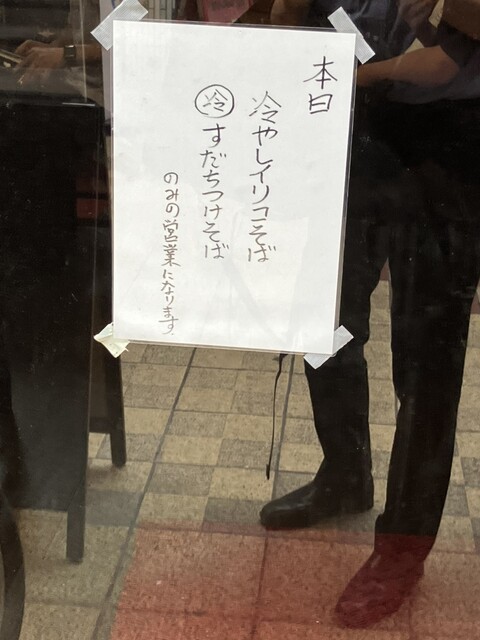 本日
冷やしイリコそば
冷すだちつけそば
のみの営業になります。